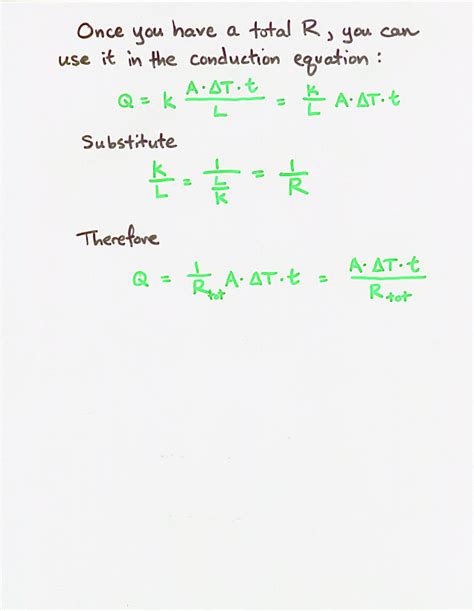 Once you have a total R, you can
use it in the conduction equation:
Q = k A·ΔT·t / L = k/L A·ΔT·t
Substitute
k/L = 1/(L/k) = 1/R
Therefore
Q = 1/R_tot A·ΔT·t = A·ΔT·t / R_tot